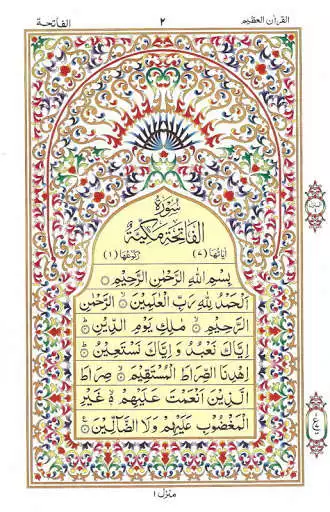 القرآن العظیم
٢
الفاتحة
سُوْرَةُ
الْفَاتِحَةِ مَكِّيَّةٌ
اٰیَاتُهَا (٧)
رُكُوْعُهَا (١)
بِسْمِ اللّٰهِ الرَّحْمٰنِ الرَّحِيْمِ ۝
اَلْحَمْدُ لِلّٰهِ رَبِّ الْعٰلَمِيْنَ ۝ الرَّحْمٰنِ
الرَّحِيْمِ ۝ مٰلِكِ يَوْمِ الدِّيْنِ ۝
اِيَّاكَ نَعْبُدُ وَ اِيَّاكَ نَسْتَعِيْنُ ۝
اِهْدِنَا الصِّرَاطَ الْمُسْتَقِيْمَ ۝ صِرَاطَ
الَّذِيْنَ اَنْعَمْتَ عَلَيْهِمْ ۝ غَيْرِ
الْمَغْضُوْبِ عَلَيْهِمْ وَلَا الضَّآلِّيْنَ ۝
منزل ١